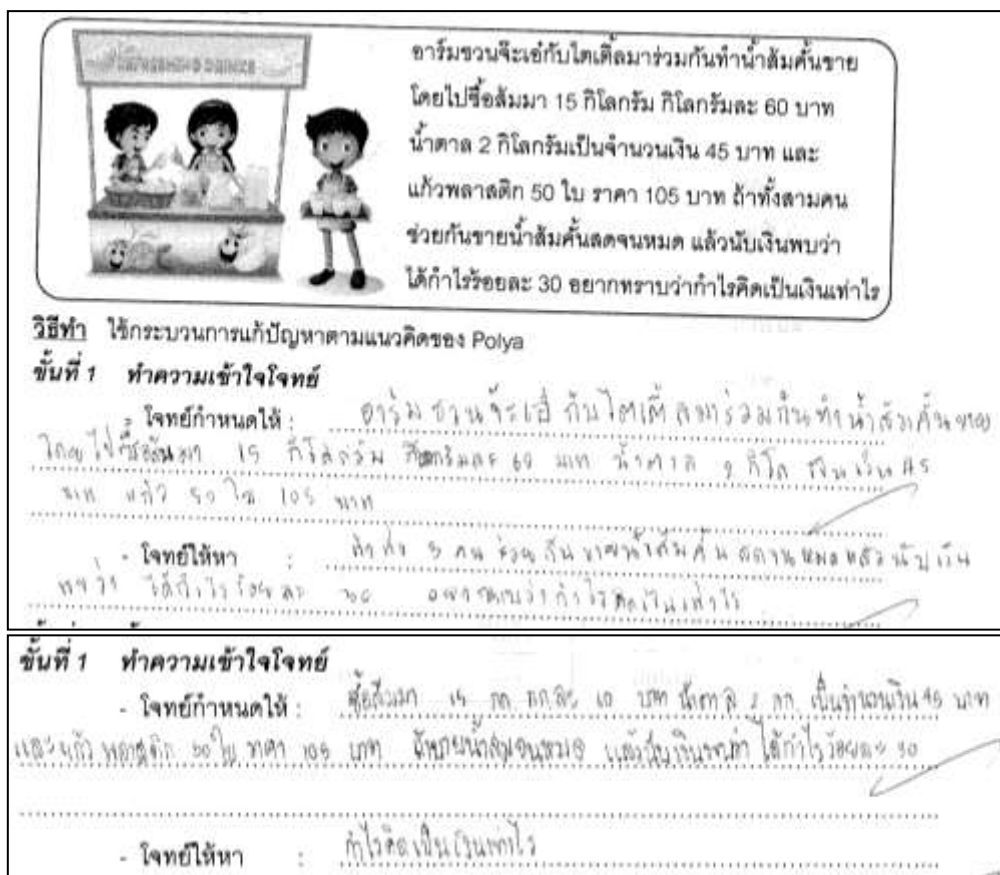 REFRESHING DRINKS
อาร์มชวนจ๊ะเอ๋กับไตเติ้ลมาร่วมกันทำน้ำส้มคั้นขาย
โดยไปซื้อส้มมา 15 กิโลกรัม กิโลกรัมละ 60 บาท
น้ำตาล 2 กิโลกรัมเป็นจำนวนเงิน 45 บาท และ
แก้วพลาสติก 50 ใบ ราคา 105 บาท ถ้าทั้งสามคน
ช่วยกันขายน้ำส้มคั้นสดจนหมด แล้วนับเงินพบว่า
ได้กำไรร้อยละ 30 อยากทราบว่ากำไรคิดเป็นเงินเท่าไร
วิธีทำ ใช้กระบวนการแก้ปัญหาตามแนวคิดของ Polya
ขั้นที่ 1 ทำความเข้าใจโจทย์
- โจทย์กำหนดให้ : อาร์มชวนจ๊ะเอ๋ กับไตเติ้ลมาร่วมกันทำน้ำส้มคั้นขาย
โดยไปซื้อส้มมา 15 กิโลกรัม กิโลกรัมละ 60 บาท น้ำตาล 2 กิโล เป็นเงิน 45
บาท แก้ว 50 ใบ 105 บาท
- โจทย์ให้หา : ถ้าทั้ง 3 คน ช่วยกันขายน้ำส้มคั้นสดจนหมดแล้วนับเงิน
พบว่า ได้กำไรร้อยละ 30 อยากทราบว่ากำไรคิดเงินเท่าไร
ขั้นที่ 1 ทำความเข้าใจโจทย์
- โจทย์กำหนดให้ : ซื้อส้มมา 15 กก กกละ 60 บาท น้ำตาล 2 กก เป็นจำนวนเงิน 45 บาท
และแก้วพลาสติก 50 ใบ ราคา 105 บาท ขายน้ำส้มจนหมด แล้วนับเงินพบว่า ได้กำไรร้อยละ 30
- โจทย์ให้หา : กำไรคิดเป็นเงินเท่าไร